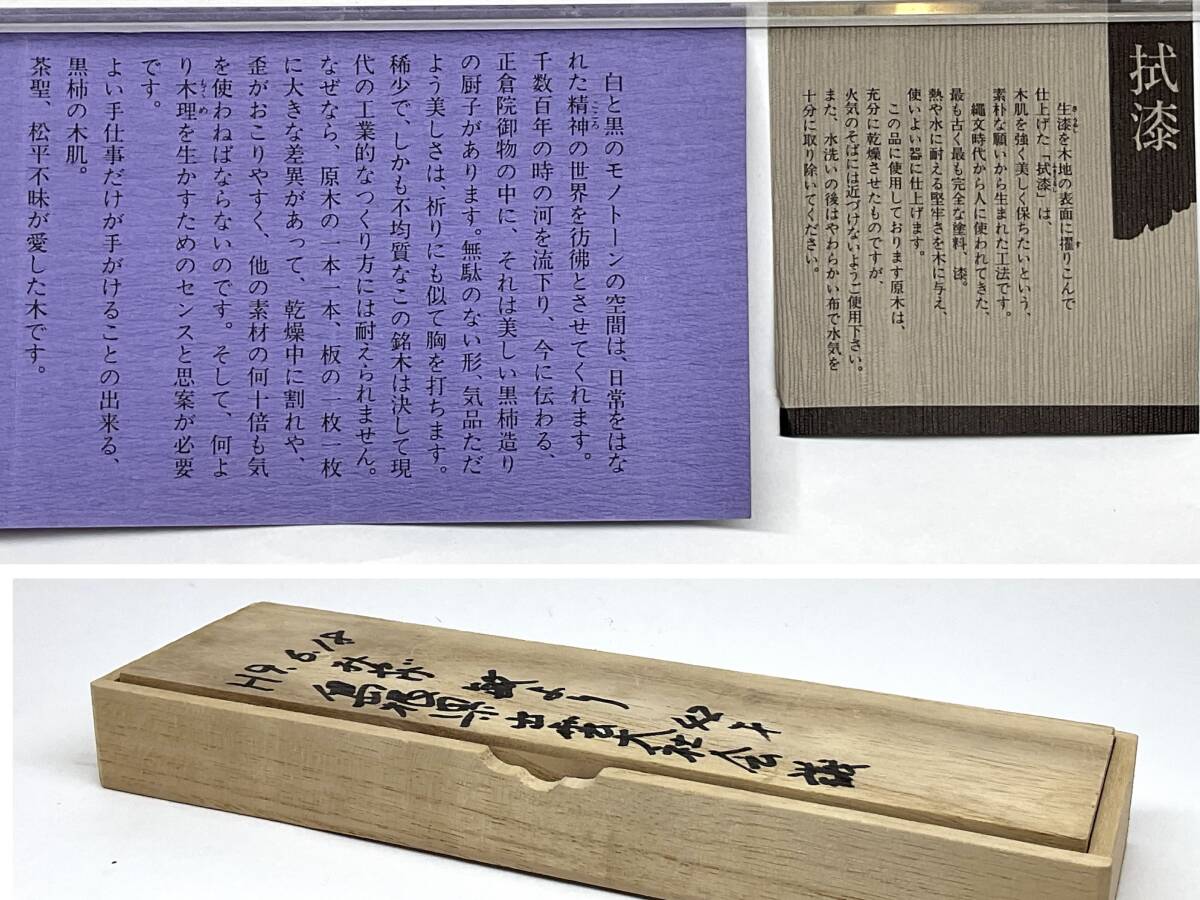 白と黒のモノトーンの空間は、日常をはな
れた精神の世界を彷彿とさせてくれます。
こころ
千数百年の時の河を流下り、今に伝わる、
正倉院御物の中に、それは美しい黒柿造り
の厨子があります。無駄のない形、気品ただ
よう美しさは、祈りにも似て胸を打ちます。
稀少で、しかも不均質なこの銘木は決して現
代の工業的なつくり方には耐えられません。
なぜなら、原木の一本一本、板の一枚一枚
に大きな差異があって、乾燥中に割れや、
歪がおこりやすく、他の素材の何十倍も気
を使わねばならないのです。そして、何よ
り木理を生かすためのセンスと思案が必要
もくめ
です。
よい手仕事だけが手がけることの出来る、
黒柿の木肌。
茶聖、松平不昧が愛した木です。
拭漆
生漆を木地の表面に擢りこんで
仕上げた「拭漆」は、
木肌を強く美しく保ちたいという、
素朴な願いから生まれた工法です。
縄文時代から人に使われてきた、
最も古く最も完全な塗料、漆。
熱や水に耐える堅牢さを木に与え、
使いよい器に仕上げます。
この品に使用しております原木は、
充分に乾燥させたものですが、
火気のそばには近づけないようご使用下さい。
また、水洗いの後はやわらかい布で水気を
十分に取り除いてください。
H9.6.18
より
島根県出雲大社